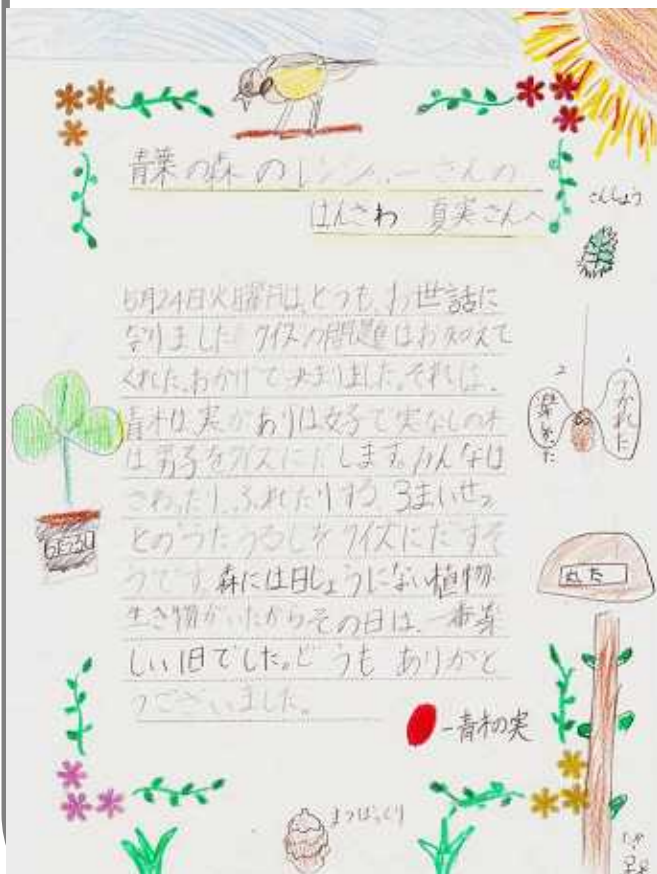 青葉の森のレンジャーさんの
はんさわ 真実さんへ
さんしょう
5月24日火曜日は、とても、お世話に
なりました クイズの問題はおしえて
くれた、おかげで決まりました。それは、
青木は、実がありは女子で実なしの木
は男子をクイズにだします。みんなは
さわったり、ふれたりする 3まいせっ
とのつたうるしをクイズにだすそ
うです。森には日じょうにない植物
生き物がいたからその日は、一番楽
しい1日でした。どうも ありがと
うございました。
1 つかれた
2 楽しかった
丸た
-青木の実
まつぼっくり